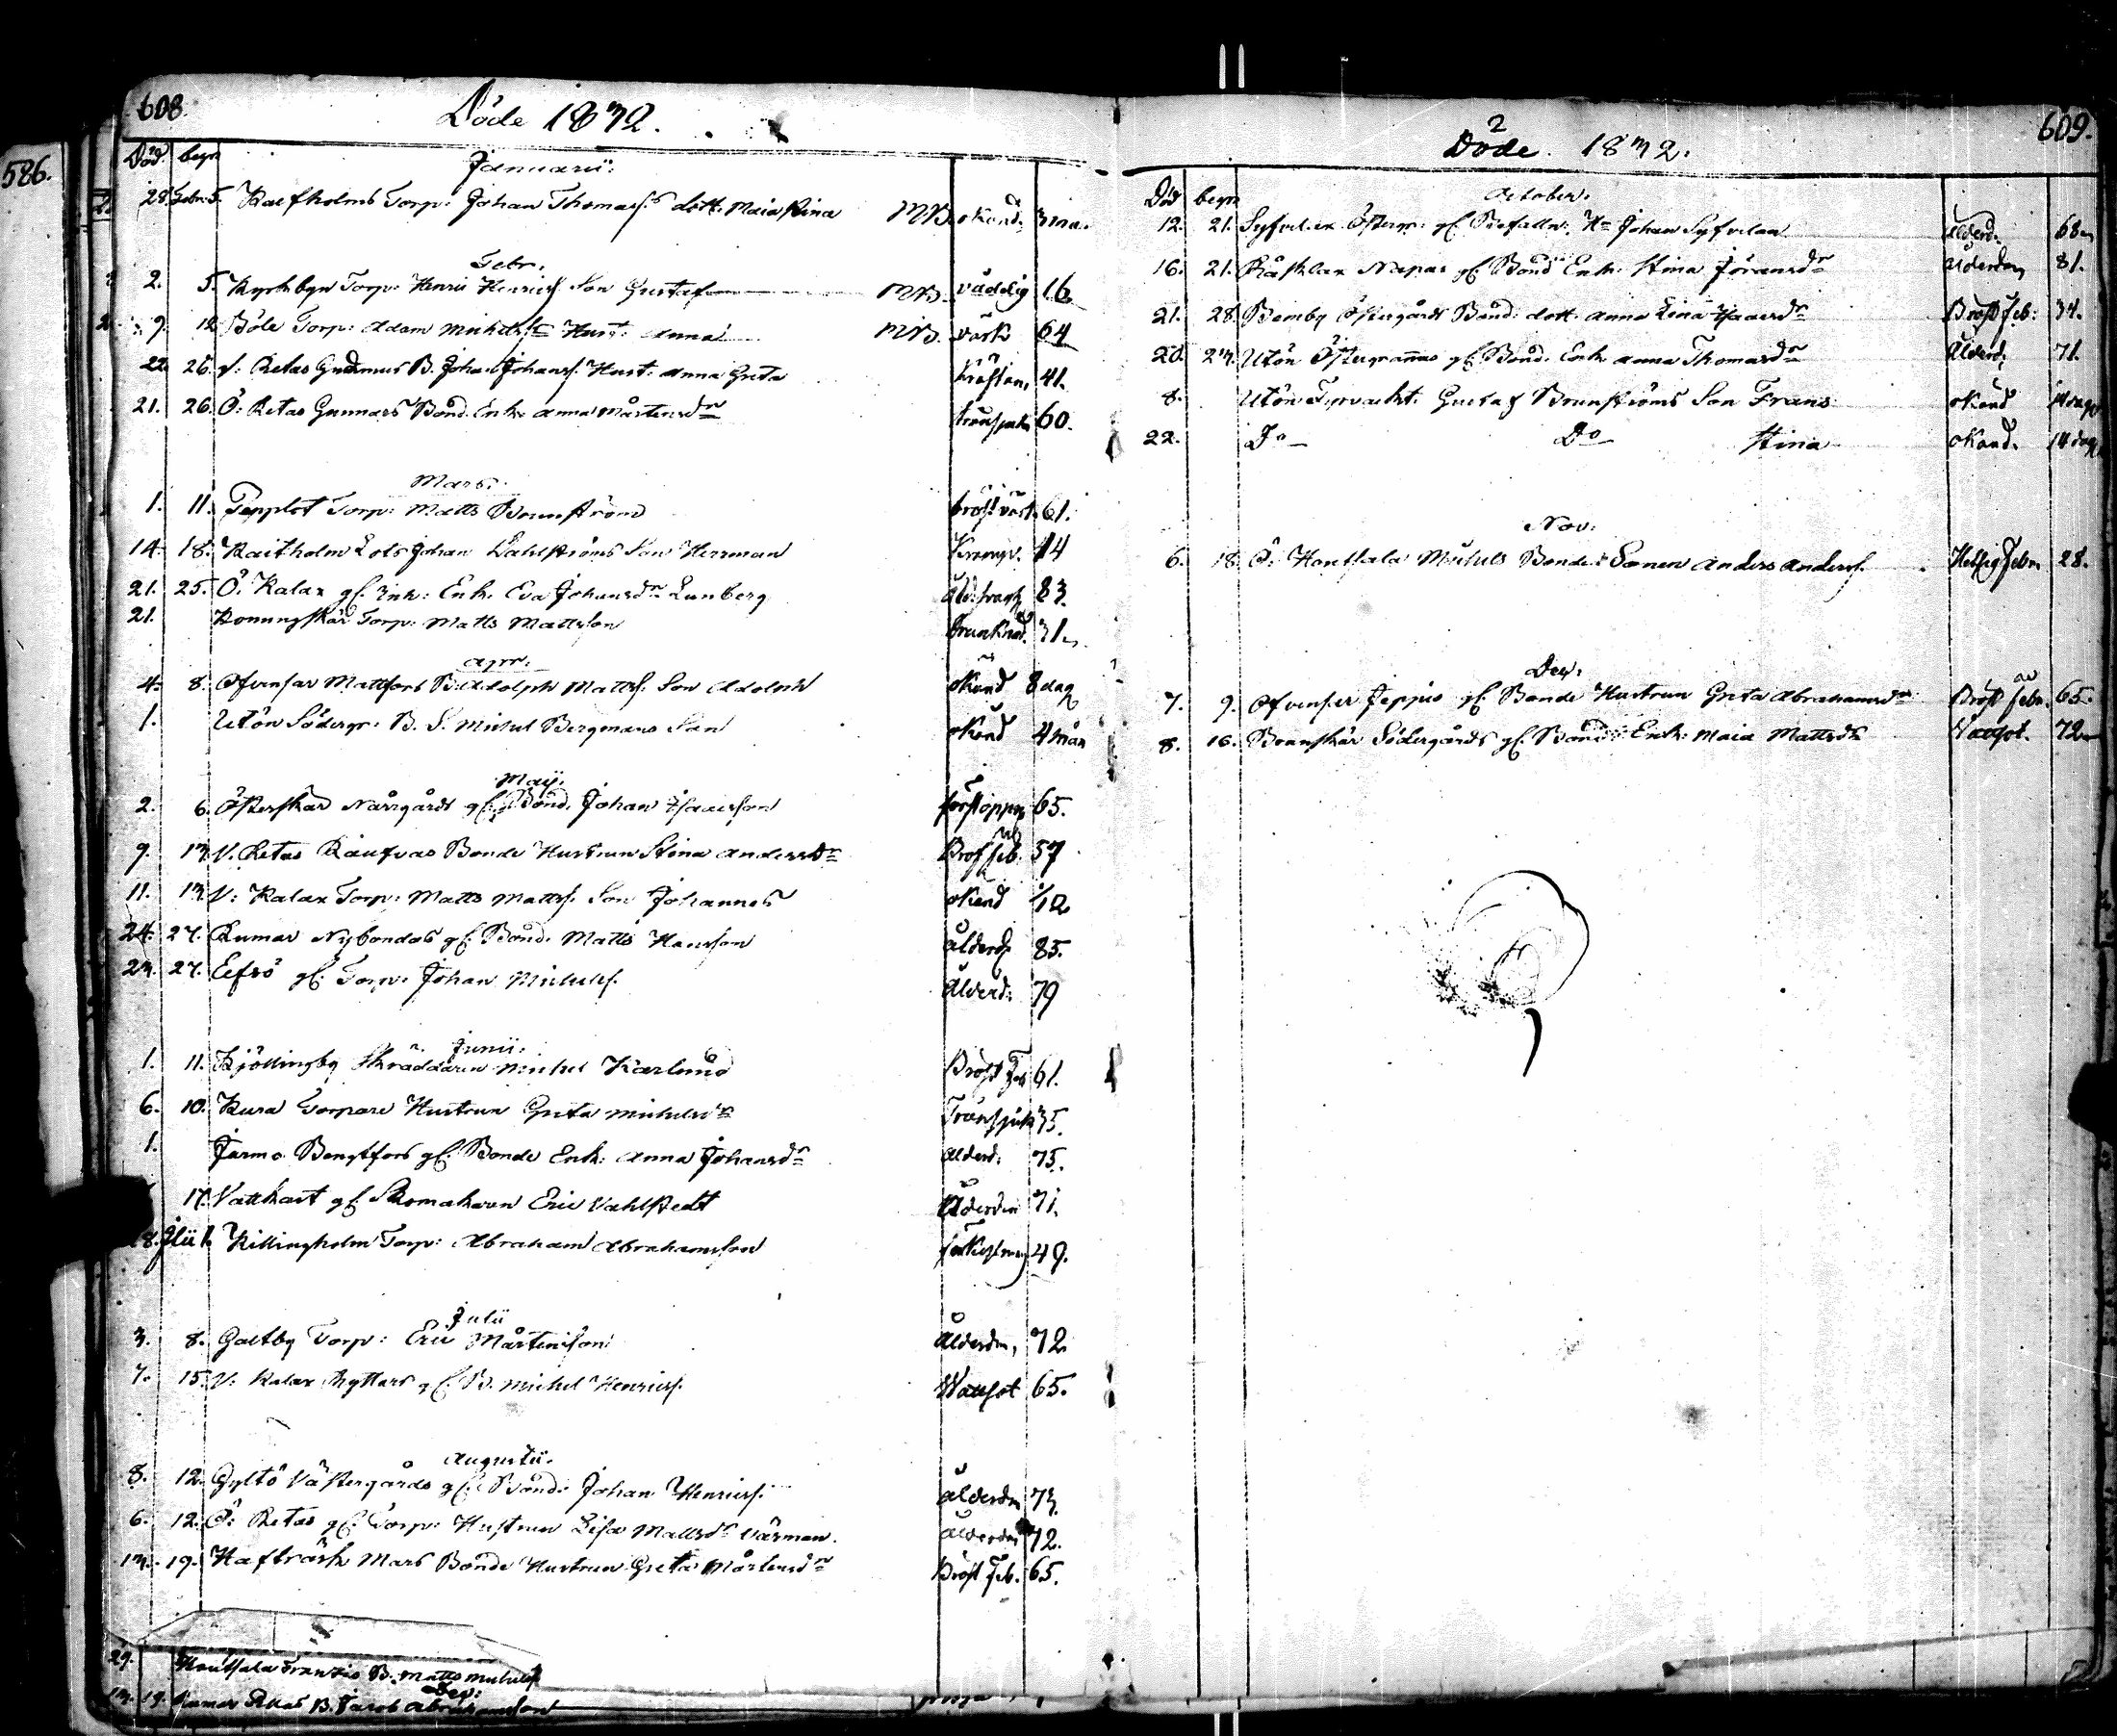 586.
608.
Döde 1832.
Död. begr
Januarii:
28. Febr. 5. Kalfholms Torp: Johan Thomass. dott. Maia Stina MB. okänd. 3 mn.
Febr.
2. 5. Kyrkbyn Torp: Henric Henricss Son Gustaf MB. våddig 16
9. 12 Böle Torp: Adam Michelss Hust: Anna MB. värk 64
22 26. V: Retas Gudmus B. Johan Johanss. Hust: Anna Greta 41.
21. 26. Ö: Retas Gunnars Bond. Enk. Anna Mårtensdr 60.
Mars:
1. 11. Pepplot Torp: Matts Brunström bröstvärk 61.
14. 18. Kaitholm Lots Johan Dahlströms Son Herrman Kramp. 14
21. 25. Ö: Kalax gl. Enk. Eva Johansdr Lunberg 83.
21. Konungskär Torp: Matts Mattsson Drunknad. 31
Apr:
4. 8. Ofvensor Mattfors B. Adolph Mattss. Son Adolph okänd 8 dag
1. Utön Södergr: B. S. Michel Bergmans Son okänd 4 mån
Maji.
2. 6. Österskär Norrgårds gl. Bond. Johan Isacsson förstoppng 65.
9. 13 V. Retas Räufvas Bonde Hustrun Stina Andersdr Bröst feb. 57
11. 13 V: Kalax Torp: Matts Mattss. Son Johannes okänd 1/12
24. 27. Rumar Nybondas gl. Bond. Matts Hansson ålderd 85.
23. 27. Eefsö gl. Torp: Johan Michelss. Ålderd: 79
Junii.
1. 11. Kjöllingby Skräddaren Michel Karlund Bröst Feb 61.
6. 10. Kura Torpare Hustrun Greta Michelsdr Transjuk 35.
1. Jurmo Bengtfors gl. Bonde Enk: Anna Johansdr ålderd. 75.
17. Vattkast gl. Skomakaren Eric Vahlstedt Ålderdn 71.
8. Julii 1. Killingholm Torp: Abraham Abrahamsson 49.
Julii
3. 8. Galtby Torp: Eric Mårtensson Ålderdm, 72
7. 15. V: Kalax Ryttars gl. B. Michel Henricss. Wattsot 65.
Augustii.
8. 12. Gyltö Västergårds gl. Bond. Johan Henricss. ålderdm 73.
6. 12. Ö: Retas gl. Torp: Hustrun Lisa Mattsdr Värman. ålderdm 72.
13. 19. Hafträsk Mars Bonde Hustrun Greta Mårtensdr Bröst Feb. 65.
29. Houtsala Fransio B. Matts Michelss
Sep:
13. 19. Rumar Skas B. Jacob Abrahamsson
609.
2
Döde. 1832.
Död begr
October.
12. 21. Syfvelax Östergr: gl. Befalln. Hr Johan Syfvelan ålderd. 68
16. 21. Råsklax Nepas gl. Bond Enk. Stina Jöransdr ålderdom 81.
21. 28. Bemby Östergårds Bond. dott. Anna Lina Isacsdr Bröst feb: 34.
20. 23. Utön Östergrannas gl. Bond. Enk Anna Thomasdr Ålderd, 71.
8. Utön Fyrvakt. Gustaf Brunströms Son Frans okänd
22. Do Do Stina okänd. 14 dag
Nov:
6. 18. Ö: Houtsala Michels Bonde Sonen Anders Anderss. Hetsig Feber 28.
Dec.
7. 9. Ofvensor Jeppis gl. Bonde Hustrun Greta Abrahamsdr Bröst feber. 65.
8. 16. Brunskär Södergårds gl. Bond. Enk: Maia Mattsdr Vattsot. 72